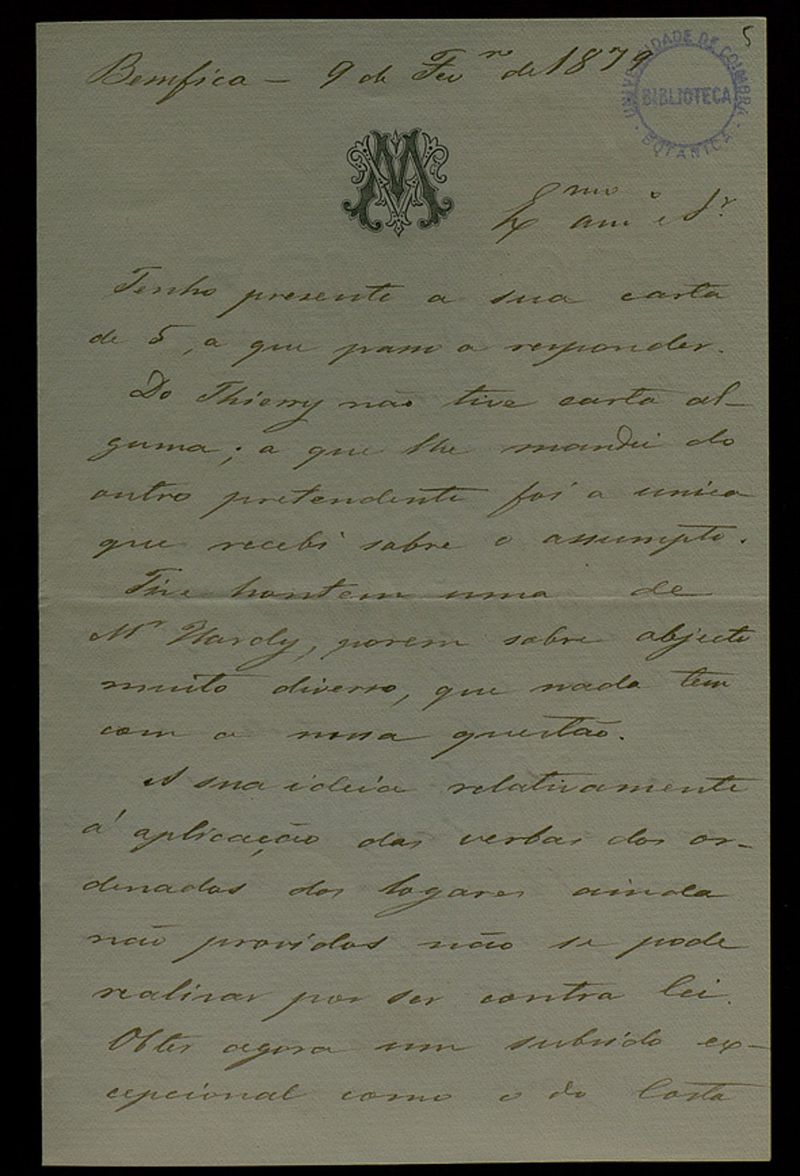 5
Bemfica — 9 de Fevro de 1879
UNIVERSIDADE DE COIMBRA
BIBLIOTECA
BOTANICA
Exmo amo e Sr
Tenho presente a sua carta
de 5, a que passo a responder.
Do Thierry não tive carta al-
guma; a que lhe mandei do
outro pretendente foi a unica
que recebi sobre o assumpto.
Tive hontem uma de
Mr Hardy, porem sobre objecto
muito diverso, que nada tem
com a nossa questão.
A sua ideia relativamente
á aplicação das verbas dos or-
denados dos logares ainda
não providos não se pode
realisar por ser contra lei.
Obter agora um subsido ex-
cepcional como o do Costa